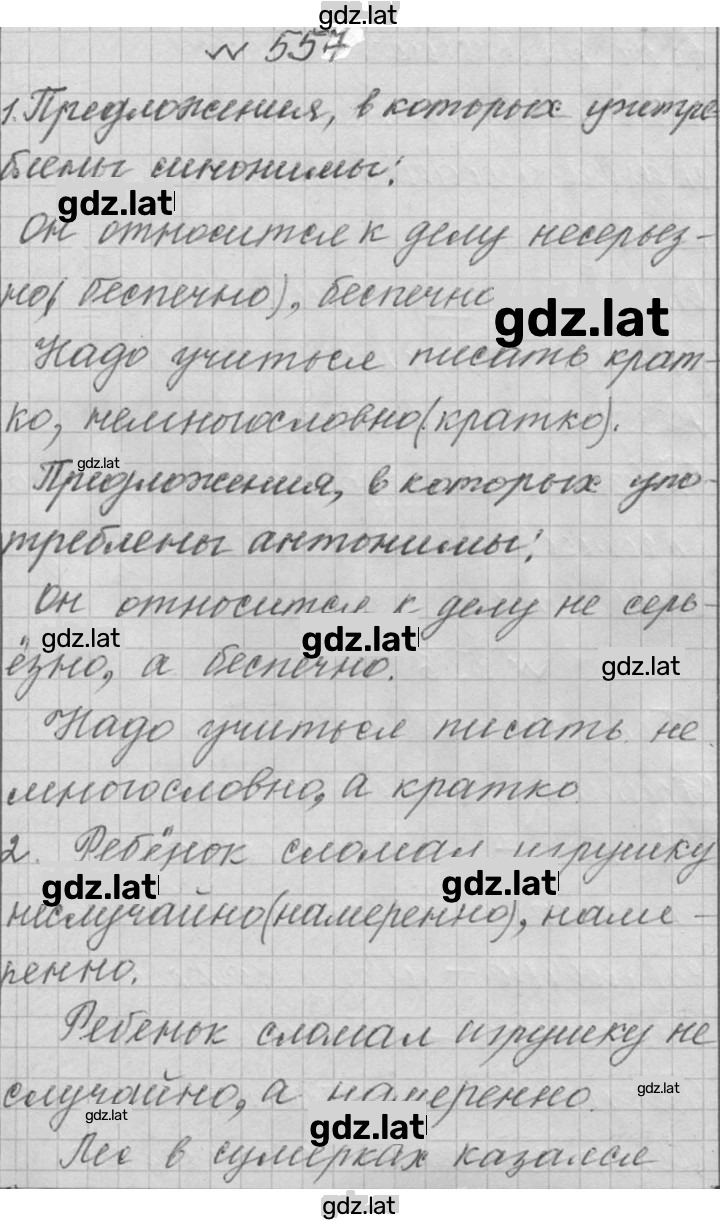 gdz.lat
№ 557
1. Предложения, в которых употре
блены синонимы:
gdz.lat
Он относится к делу несерьез-
но( беспечно), беспечно
gdz.lat
Надо учиться писать крат-
ко, немногословно(кратко).
gdz.lat
Предложения, в которых упо-
треблены антонимы:
Он относится к делу не серь-
gdz.lat gdz.lat
ёзно, а беспечно.
gdz.lat
Надо учиться писать не
многословно, а кратко
2. Ребёнок сломал игрушку
gdz.lat gdz.lat
неслучайно(намеренно), наме-
ренно.
Ребенок сломал игрушку не
случайно, а намеренно.
gdz.lat
gdz.lat
gdz.lat
Лес в сумерках казался
gdz.lat